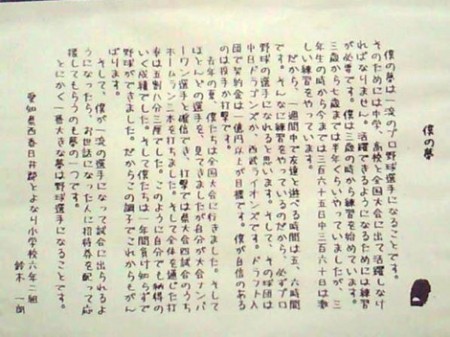 僕の夢
僕の夢は一流のプロ野球選手になることです。
そのためには中学、高校と全国大会に出て活躍しなけ
ればなりません。活躍できるようになるためには練習
が必要です。僕は三歳の時から練習を始めています。
三歳から七歳までは半年くらいやっていましたが、三
年生の時から今までは三百六十五日中三百六十日は激
しい練習をやっています。
だから、一週間中で友達と遊べる時間は五、六時間
です。そんなに練習をやっているのだから、必ずプロ
野球の選手になれると思います。そして、その球団は
中日ドラゴンズか、西武ライオンズです。ドラフト入
団で契約金は一億円以上が目標です。僕が自信のある
のは投手か打撃です。
去年の夏、僕たちは全国大会に行きました。そして
ほとんどの選手を、見てきましたが自分が大会ナンバ
ーワン選手と確信でき、打撃では県大会四試合のうち
ホームラン三本を打ちました。そして全体を通した打
率は五割八分三厘でした。このように自分でも納得の
いく成績でした。そして僕たちは一年間負け知らずで
野球ができました。だからこの調子でこれからもがん
ばります。
そして、僕が一流の選手になって試合に出られるよ
うになったら、お世話になった人に招待券を配って応
援してもらうのも夢の一つです。
とにかく一番大きな夢は野球選手になることです。
愛知県西春日井郡とよなり小学校六年二組
鈴木一朗